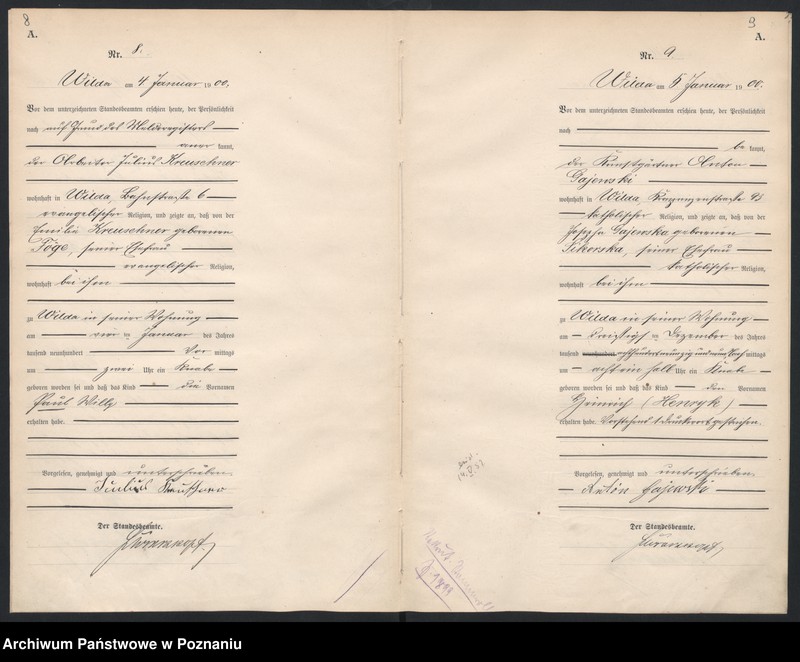 8
A.
Nr. 8.
Wilda am 4 Januar 1900.
Vor dem unterzeichneten Standesbeamten erschien heute, der Persönlichkeit
nach auf Grund des Melderegisters
kannt,
der Arbeiter Julius Kreuschner
wohnhaft in Wilda, Bahnstraße 6
evangelischer Religion, und zeigte an, daß von der
Emilie Kreuschner geborenen
Töge, seiner Ehefrau
evangelischer Religion,
wohnhaft bei ihm
zu Wilda in seiner Wohnung
am Januar des Jahres
tausend neunhundert Vor mittags
um zwei Uhr ein Knabe
geboren worden sei und daß das Kind die Vornamen
Paul Willy
erhalten habe.
Vorgelesen, genehmigt und unterschrieben.
Julius
Der Standesbeamte.
9
A.
Nr. 9.
Wilda am 5 Januar 1900.
Vor dem unterzeichneten Standesbeamten erschien heute, der Persönlichkeit
nach
be kannt,
der Kunstgärtner Anton
Gajewski
wohnhaft in Wilda,
katholischer Religion, und zeigte an, daß von der
Josepha Gajewska geborenen
Sikorska, seiner Ehefrau
katholischer Religion,
wohnhaft bei ihm
zu Wilda in seiner Wohnung
am dreißigsten Dezember des Jahres
tausend neunhundert achthundert neunzig und neun Nach mittags
um acht ein halb Uhr ein Knabe
geboren worden sei und daß das Kind den Vornamen
Heinrich (Henryk)
erhalten habe. Vorstehend 1 Druckwort gestrichen.
Vorgelesen, genehmigt und unterschrieben.
Antón Gajewski
Der Standesbeamte.
Archiwum Państwowe w Poznaniu